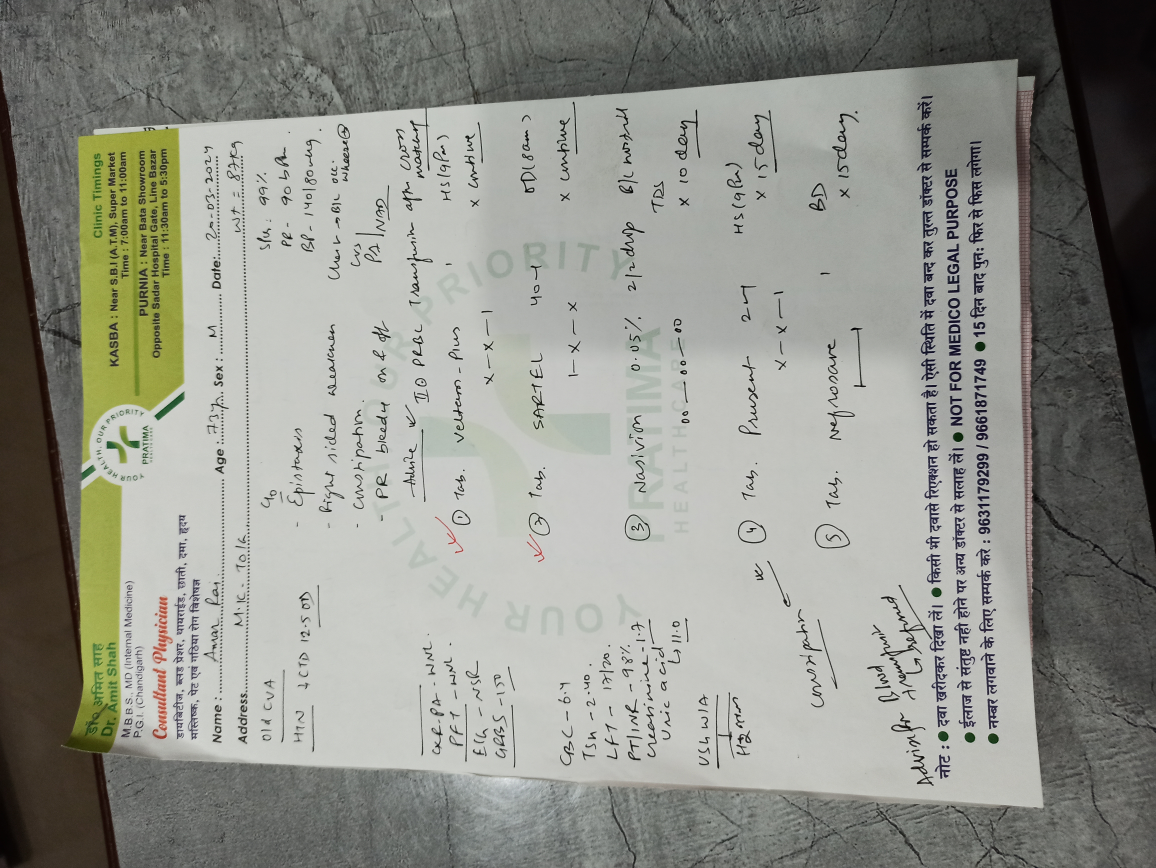 डॉ० अमित साह
Dr. Amit Shah
M.B.B.S., MD (Internal Medicine)
P.G.I. (Chandigarh)
Consultant Physician
डायबिटीज, ब्लड प्रेशर, थायराईड, छाती, दमा, हृदय
मस्तिष्क, पेट एवं गठिया रोग विशेषज्ञ
YOUR HEALTH, OUR PRIORITY
PRATIMA
Clinic Timings
KASBA : Near S.B.I (A.T.M), Super Market
Time : 7:00am to 11:00am
PURNIA : Near Bata Showroom
Opposite Sadar Hospital Gate, Line Bazar
Time : 11:30am to 5:30pm
Name : Amar Age : 73y Sex : M Date: 20-03-2024
Address M.K. Tola Wt = 87kg
Old CVA
HTN CTD 12.5 OD
CXR PA - WNL
PFT - WNL
ECG - NSR
GRBS - 150
CBC - 6.4
TSH - 2.40
LFT -
PT/INR - 98%
Creatinine - 1.7
Uric acid
11.0
USG W/A
constipation
Advise for Blood transfusion
c/o
- Epistaxis
- Right sided weakness
- constipation
- PR bleedy on & off
SpO2 : 99%
PR - 90 bpm
BP - 140/80 mmHg
Chest → B/L occ. wheeze
CVS
PA / NAD
Advice PRBC Transfusion after cross matching
① Tab. Plus HS (9pm)
x - x - 1 x continue
② Tab. SARTEL 40 - 1 OD (8am)
1 - x - x x continue
③ Nasivion 0.05% 2/2 drop B/L nostril
TDS
00 - 00 - 00 x 10 day
④ Tab. Prusent 2 - 1 HS (9pm)
x - x - 1 x 15 day
⑤ Tab. Nefrosave 1 BD
1 1 x 15 day
YOUR HEALTH OUR PRIORITY
PRATIMA
HEALTHCARE
नोट : ● दवा खरीदकर दिखा लें। ● किसी भी दवासे रिएक्शन हो सकता है। ऐसी स्थिति में दवा बन्द कर तुरन्त डॉक्टर से सम्पर्क करें।
● ईलाज से संतुष्ट नही होने पर अन्य डॉक्टर से सलाह लें। ● NOT FOR MEDICO LEGAL PURPOSE
● नम्बर लगवाने के लिए सम्पर्क करे : 9631179299 / 9661871749 ● 15 दिन बाद पुनः फिर से फिस लगेगा।